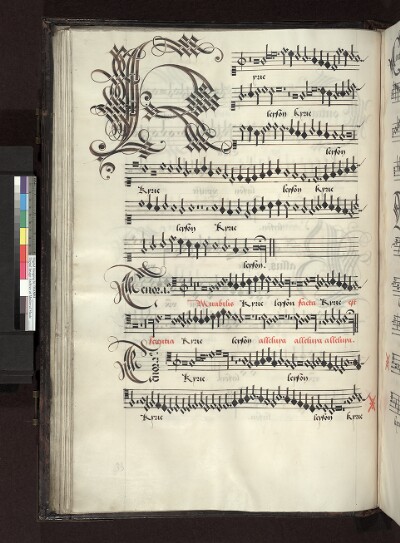 K
yrie
leyson Kyrie
leyson
Kyrie leyson Kyrie
leyson Kyrie
leyson.
Tenor
Mirabilis Kyrie leyson facta Kyrie
Kyrie leyson alleluya alleluya alleluya.
Tenor
Kyrie leyson
Kyrie leyson Kyrie